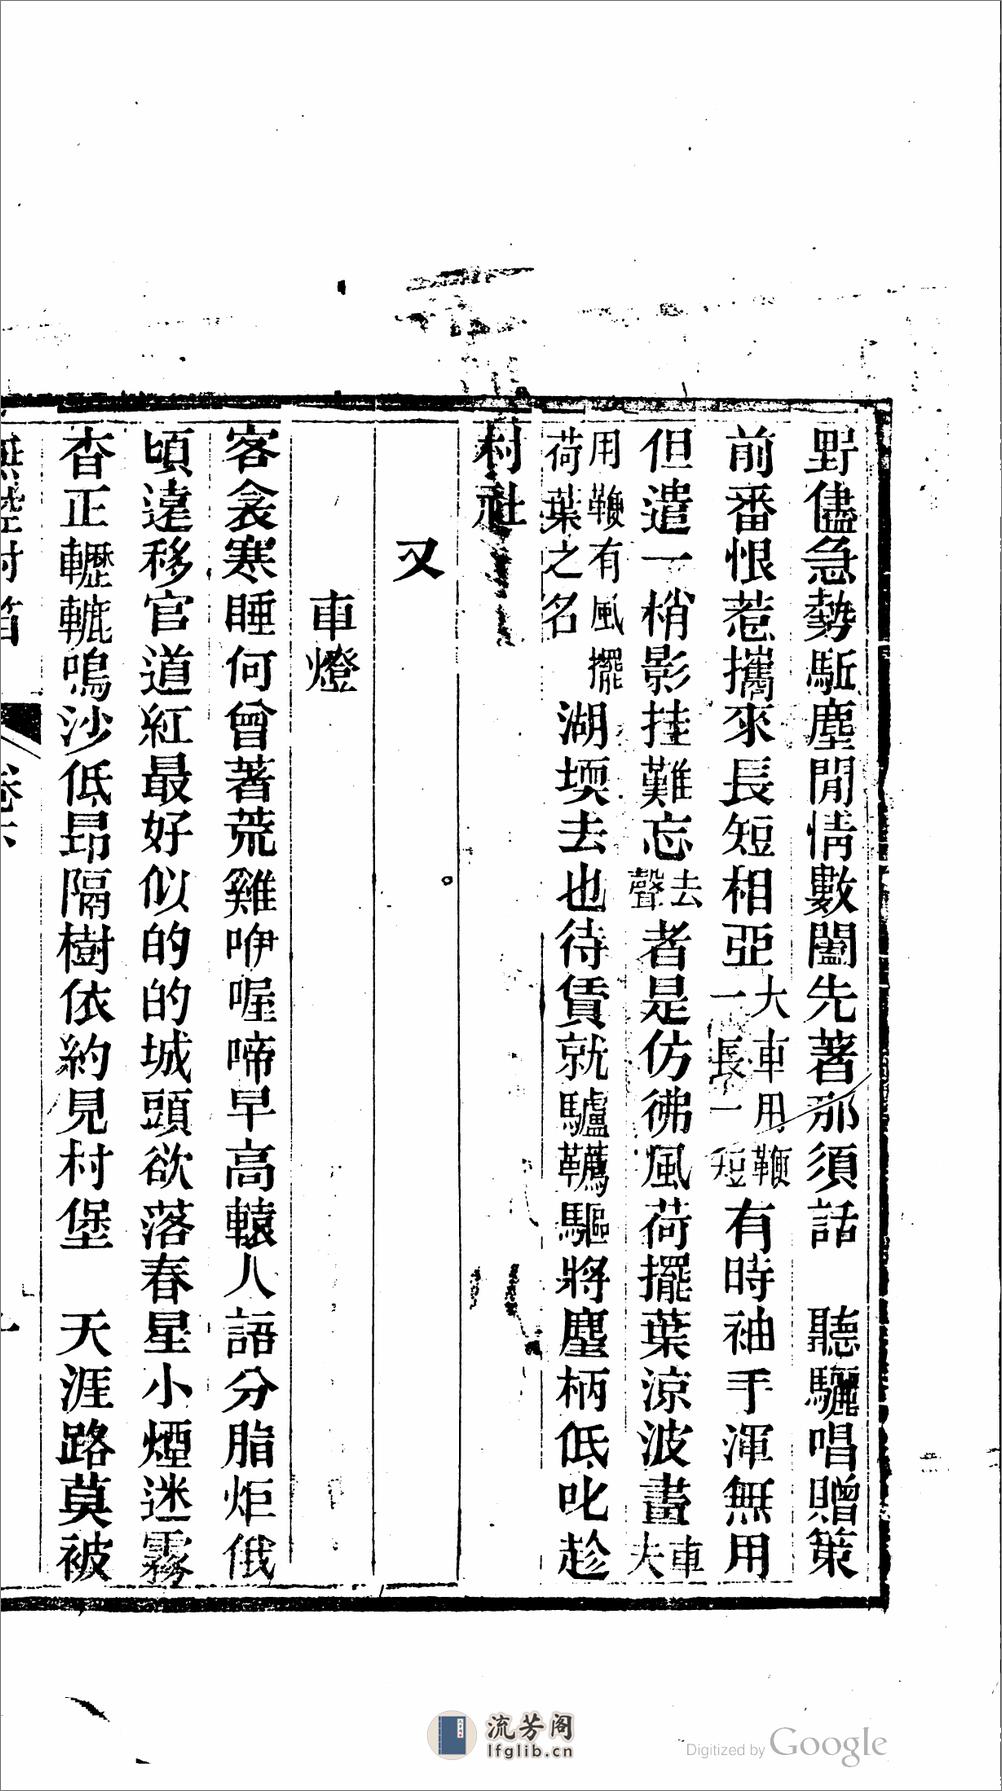 野儘急勢駈塵閒情數闔先著那須話　聽驪唱贈策
前番恨惹攜來長短相亞大車用鞭一長一短有時袖手渾無用
但遣一梢影挂難忘去聲者是仿彿風荷擺葉涼波畫車夫
用鞭有風擺荷葉之名　湖堧去也待賃就驢韉驅將麈柄低叱趁
村社
又
車燈
客衾寒睡何曾著荒雞咿喔啼早高轅人語分脂炬俄
頃遠移官道紅最好似的的城頭欲落春星小煙迷霧
杳正轣轆鳴沙低昂隔樹依約見村堡　天涯路莫被
卷六
流芳阁
lfglib.cn
Digitized by Google